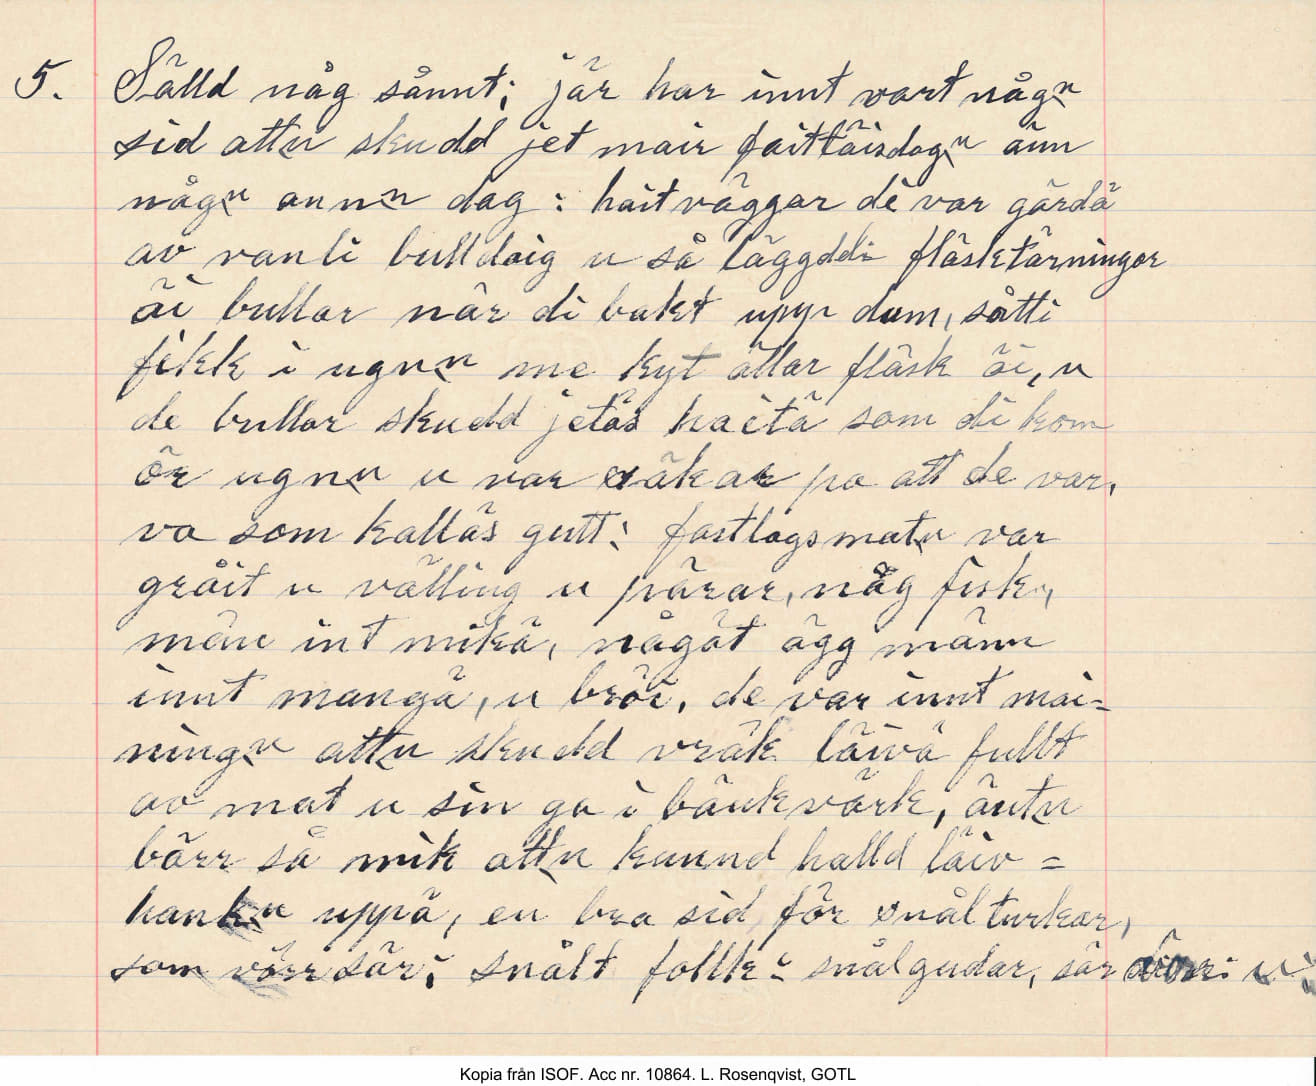 5. Sälld någ sånnt; jär har innt vart någn
sid attn skudd jet mair faittäisdagn änn
någn annn dag: haitväggar de var gärdä
av vanli bulldaig u så läggddi fläsktärningar
äi bullar när di bakt upp dum, såtti
fikk i ugnn me kyt ällar fläsk äi, u
de bullar skudd jetäs haitä som di kom
ör ugnn u var säkar pa att de var,
va som kalläs gutt: fastlagsmatn var
gräit u välling u pärar, någ fisk,
män int mikä, någät ägg männ
innt mangä, u bröi, de var innt mai=
ningn attn skudd vräk läivä fullt
av mat u sin ga i bänkvärk, äutn
bärr så mik attn kunnd halld läiv=
hankn uppä, en bra sid för snålturkar,
som värr sär; snålt follk: snålgudar, sär
Kopia från ISOF. Acc nr. 10864. L. Rosenqvist, GOTL